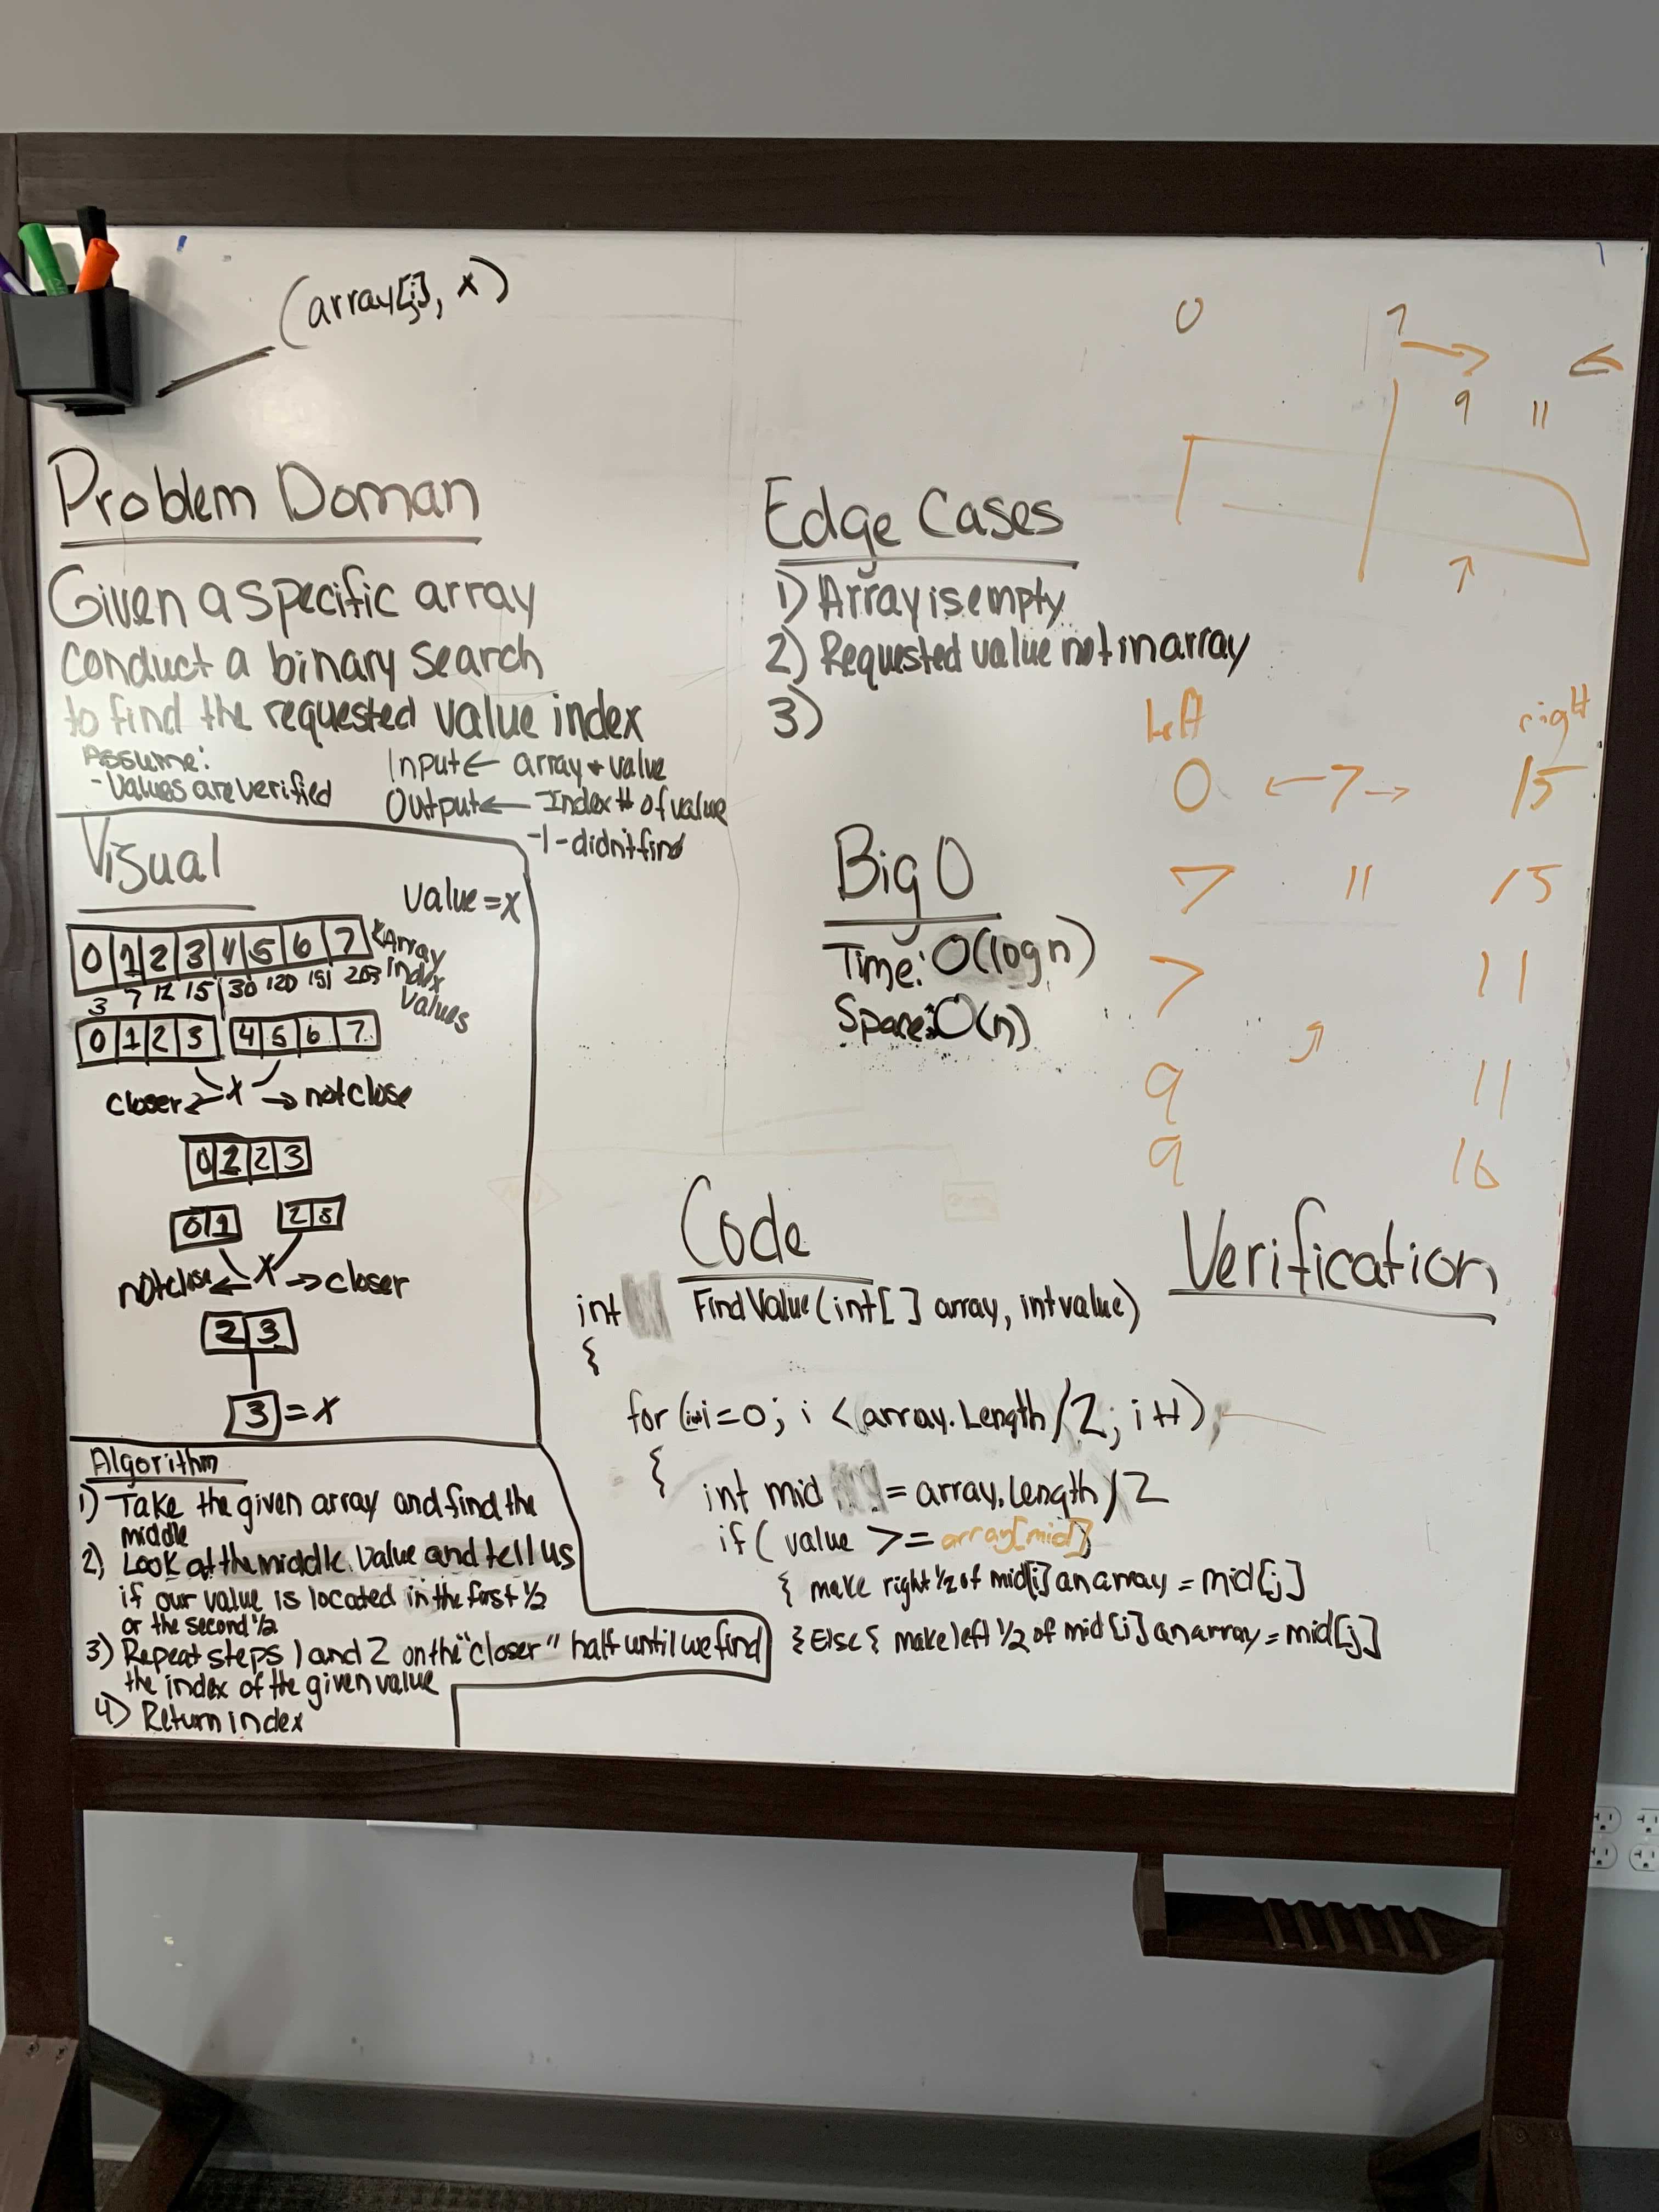 (array[j], x)
Problem Doman
Given a specific array
conduct a binary search
to find the requested value index
Assume:
- Values are verified
Input ← array + value
Output ← Index # of value
-1 - didn't find
Visual
Value = x
0 1 2 3 4 5 6 7
Array
Index
3 7 12 15 30 120 191 203
Values
0 1 2 3 4 5 6 7
closer ← x → not close
0 1 2 3
0 1 2 3
not close ← x → closer
2 3
3 = x
Algorithm
1) Take the given array and find the
middle
2) Look at the middle value and tell us
if our value is located in the first 1/2
or the second 1/2
3) Repeat steps 1 and 2 on the "closer" half until we find
the index of the given value
4) Return index
Edge Cases
1) Array is empty
2) Requested value not in array
3)
Big O
Time: O(log n)
Space: O(n)
0 7 →
9 11
left right
0 ← 7 → 15
7 11 15
7 11
9 11
9 10
Code
int FindValue(int[] array, int value)
{
for (int i = 0; i < array.Length/2; i++)
{ int mid = array.Length/2
if ( value >= array[mid])
{ make right 1/2 of mid[i] an array = mid[j]
} Else { make left 1/2 of mid[i] an array = mid[j]
Verification